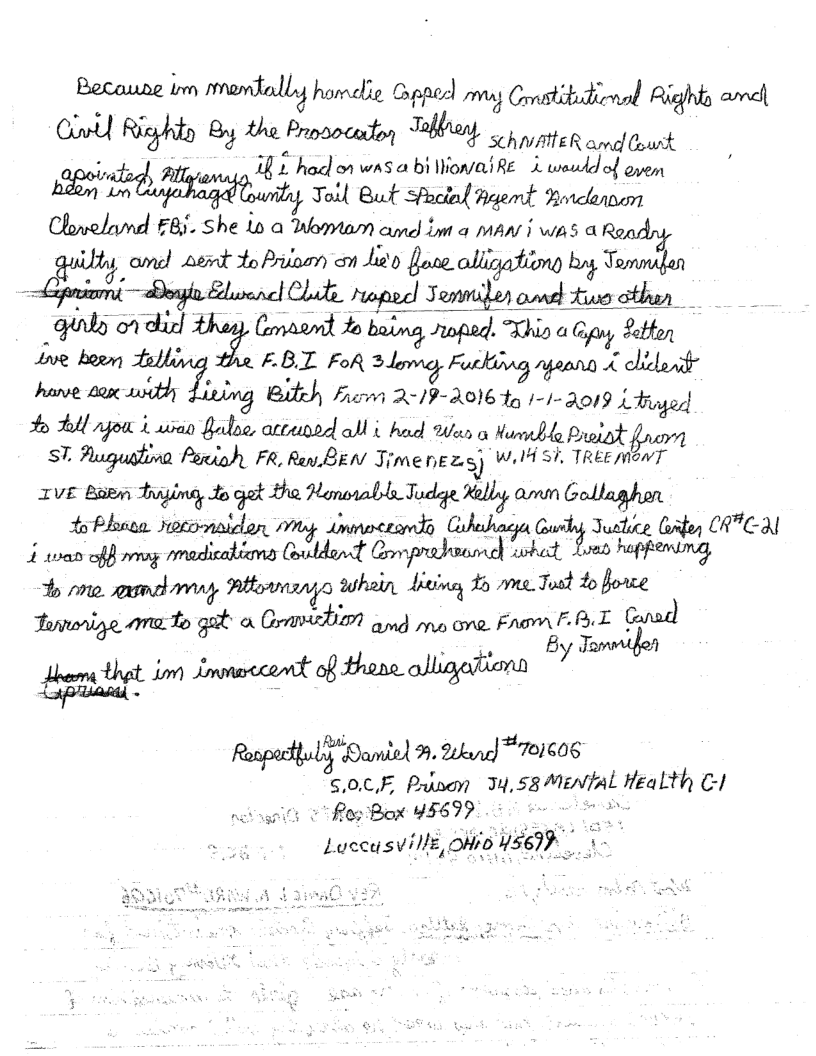 Because im mentally handie Capped my Constitutional Rights and
Civil Rights By the Prosocator Jeffrey SCHNATTER and Court
apointed Attorenys if i had or WAS a billionaiRE i would of even
been in Cuyahaga County Jail But Special Agent Anderson
Cleveland F.B.i. She is a Woman and im a MAN i WAS a Ready
guilty and sent to Prison on lie's fase alligations by Jennifer
Cipriani Doyle Edward Chute raped Jennifer and two other
girls or did they Consent to being raped. This a Copy Letter
ive been telling the F.B.I FoR 3 long Fucking years i dident
have sex with Lieing Bitch From 2-19-2016 to 1-1-2019 i tryed
to tell you i was false accused all i had Was a Humble Preist from
ST. Augustine Perish FR. Rev. BEN JimENEZ sj W. 14 ST. TREEMONT
IVE BEEN trying to get the Honorable Judge Kelly ann Gallagher
to Please reconsider my innocento Cuhahaga County Justice Center CR#C-21
i was off my medications Couldent Comprehaund what was happening
to me and my Attorneys whein lieing to me Just to force
terrorize me to get a Conviction and no one From F.B.I Cared
By Jennifer
that im innoccent of these alligations
Cipriani.
Respectfuly Rev. Daniel A. Ward #701606
S.O.C.F. Prison J4.58 MENTAL HEALth C-1
Po. Box 45699
LUCCUSVillE, OHiO 45699
Rev DANIEL A. WARD #701606